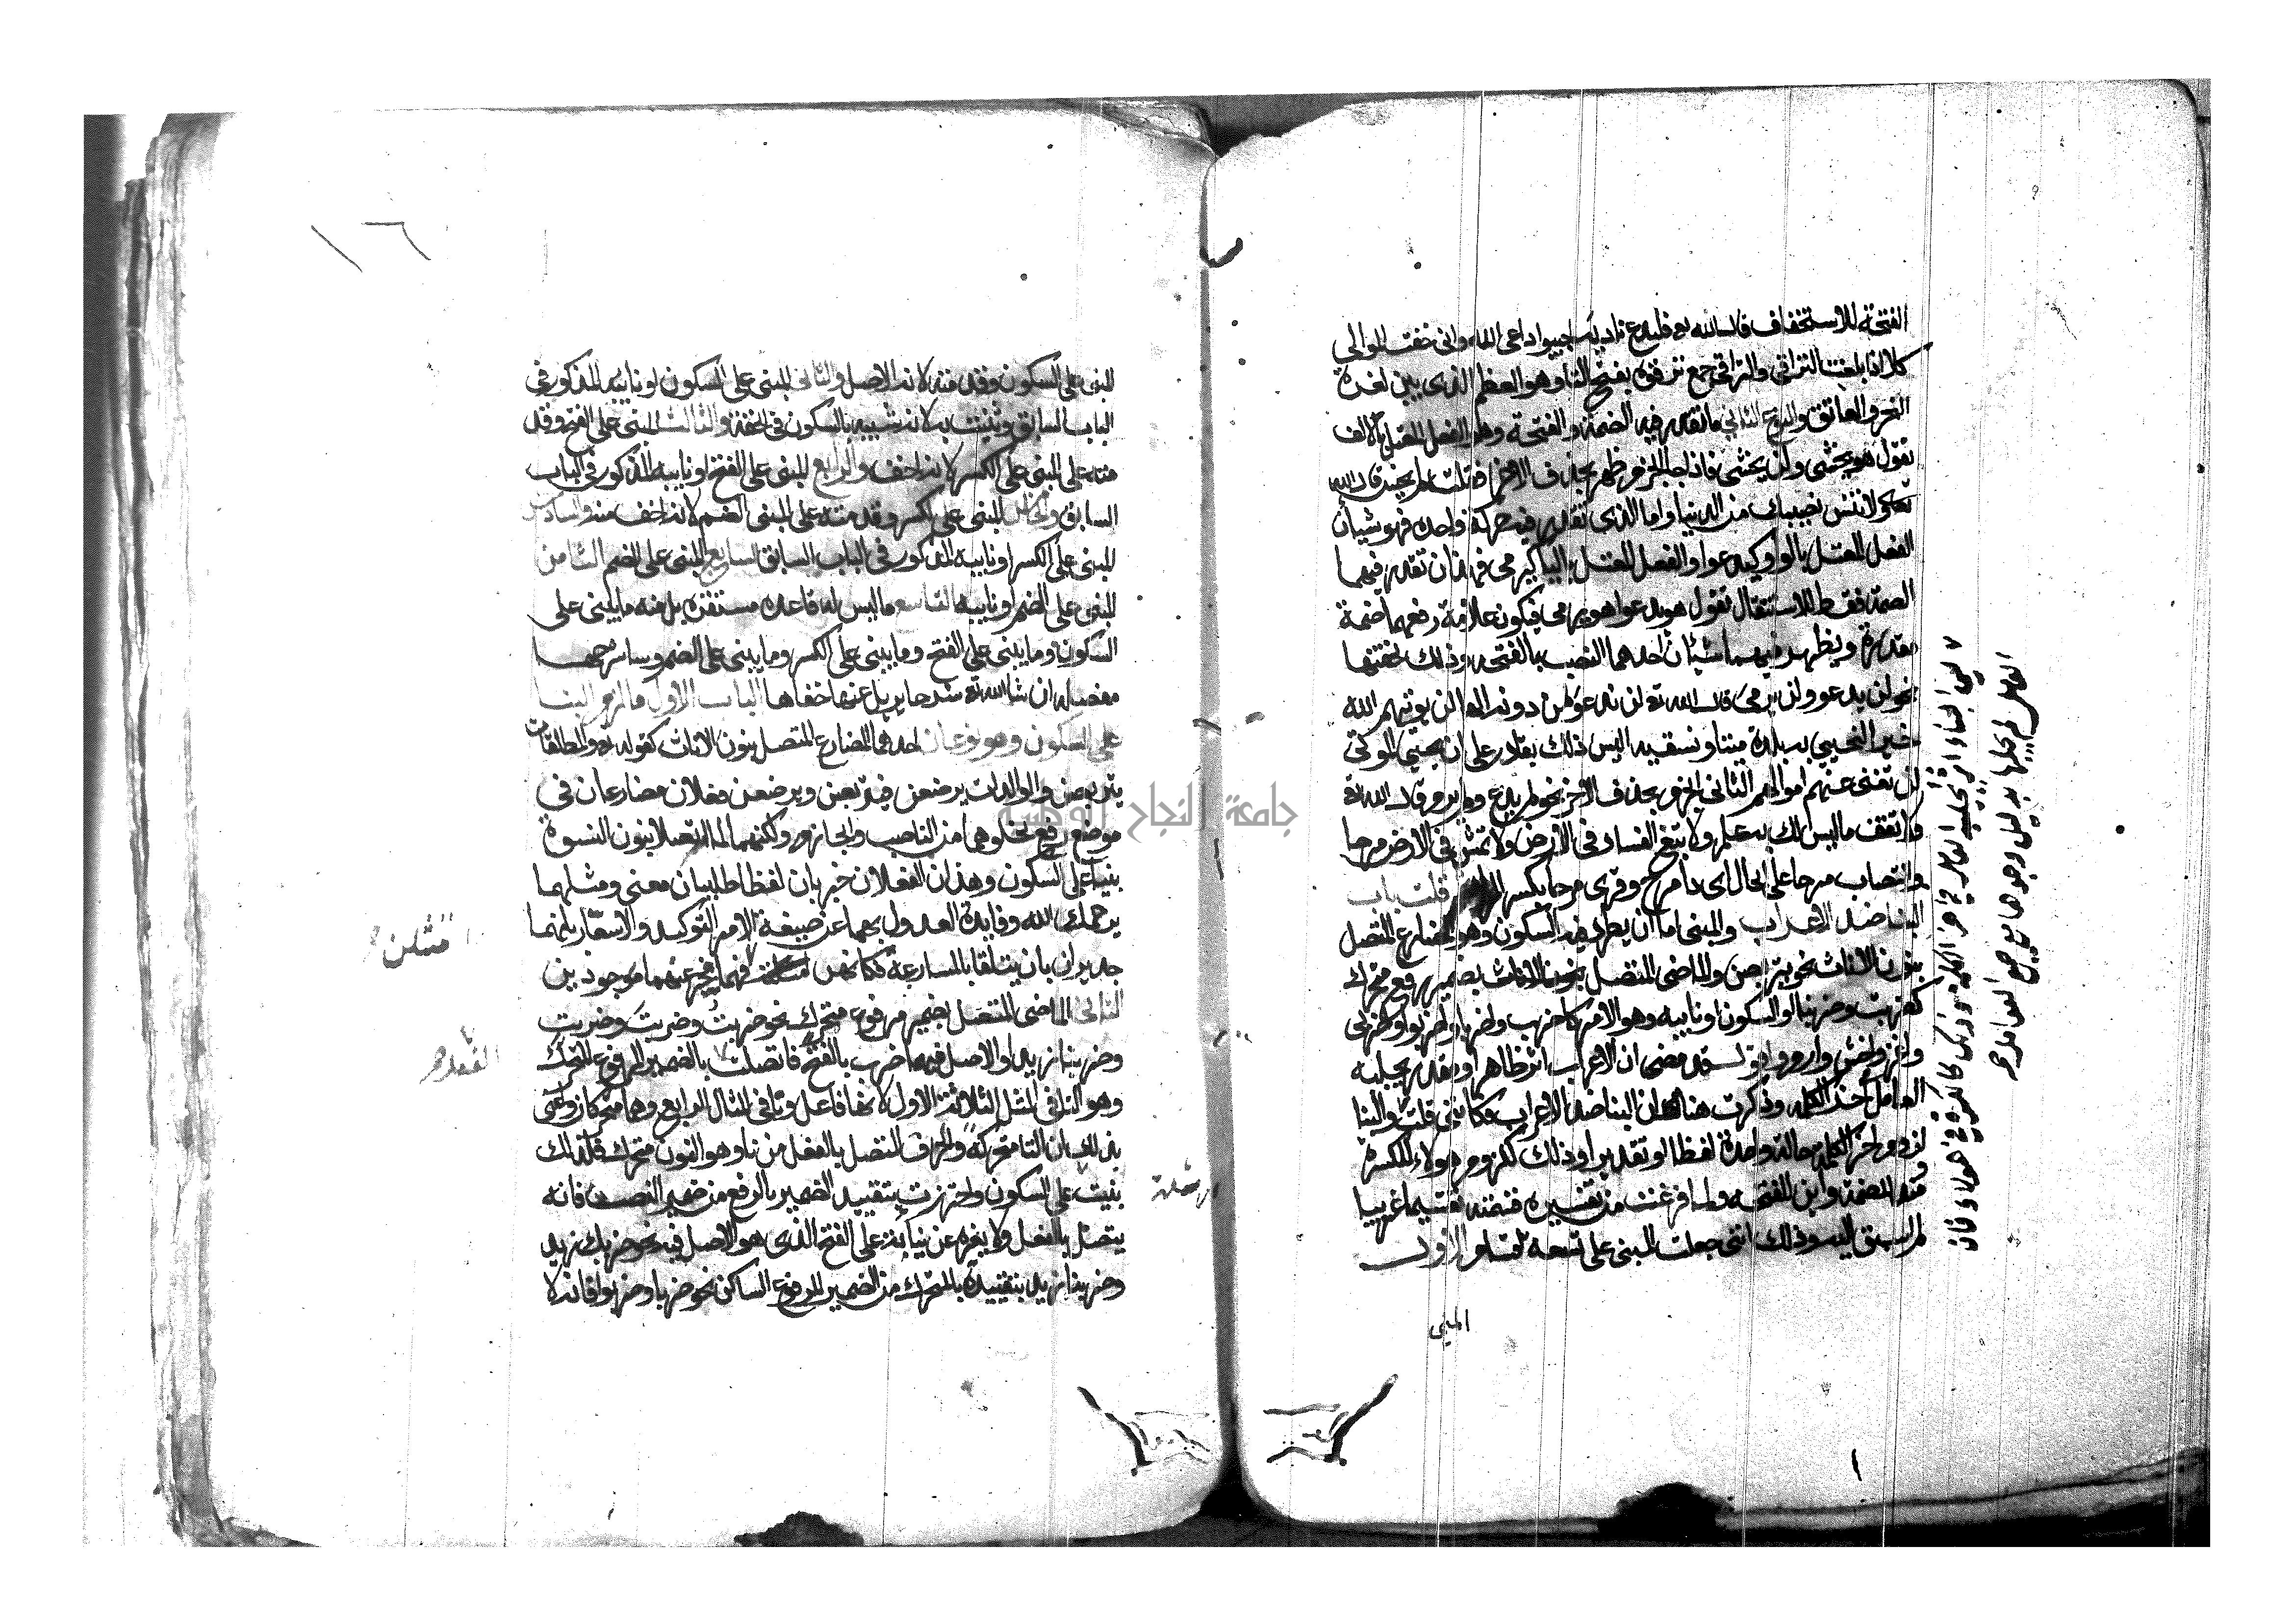 الفتحة للاستخفاف قال الله تع فليدع ناديه اجيبوا داعي الله واني خفت الموالي
كلا اذا بلغت التراقي والتراقي جمع ترقوة بفتح التا وهو العظم الذي بين ثغرة
النحر والعاتق والنوع الثاني ما تقدر فيه الضمة والفتحة وهو الفعل المعتل بالالف
تقول هو يخشى ولن يخشى فاذا جا الجزم ظهر بحذف الاخر فقلت لم يخش قال الله
تعالى ولا تنس نصيبك من الدنيا واما الذي تقدر فيه حركة واحدة فهو شيان
الفعل المعتل بالواو كيدعوا والفعل المعتل بالياء كيرمي فهذان تقدر فيهما
الضمة فقط للاستثقال تقول هو يدعوا هو يرمي فيكون علامة رفعهما ضمة
مقدرة ويظهر فيهما شيئان احدهما النصب بالفتحة وذلك لخفتها
نحو لن يدعو ولن يرمي قال الله تع لن ندعو من دونه الها لن يوتيهم الله
خيرا لنحيي به بلدة ميتا ونسقيه اليس ذلك بقادر على ان يحيي الموتى
لن تغني عنهم اموالهم الثاني الجزم بحذف الاخر نحو لم يدع ولم يرم قال الله تع
ولا تقف ما ليس لك به علم ولا تبغ الفساد في الارض ولا تمش في الارض مرحا
وانتصاب مرحا على الحال اي ذا مرح وقرى مرحا بكسر الرا قلت باب
البنا ضد الاعراب والمبني اما ان يطرد فيه السكون وهو المضارع المتصل
بنون الاناث نحو يتربصن والماضي المتصل بضمير رفع متحرك
كضربت وضربنا او السكون او نايبه وهو الامر كاضرب واضربا واضربوا واضربي
واغز واخش وارم واقول قد مضى ان الاعراب اثر ظاهر او مقدر يجلبه
العامل في اخر الكلمة وذكرت هنا ان البنا ضد الاعراب فكاني قلت والبنا
لزوم اخر الكلمة حالة واحدة لفظا او تقديرا وذلك كلزوم هولاء للكسرة
ومنذ للضمة واين للفتحة ولما فرغت من تفسيره قسمته تقسيما غريبا
لم اسبق اليه وذلك انني جعلت المبني على تسعة اقسام الاول
المبني
المبني على السكون وقدمته لانه الاصل والثاني المبني على السكون او نايبه المذكور في
الباب السابق وثنيت به لانه شبيه بالسكون في الخفة والثالث المبني على الفتح وقد
مته على المبني على الكسر لانه اخف والرابع المبني على الفتح او نايبه المذكور في الباب
السابق والخامس المبني على الكسر وقدمته على المبني الضم لانه اخف منه والسادس
المبني على الكسر او نايبه المذكور في الباب السابق السابع المبني على الضم الثامن
المبني على الضم او نايبه التاسع ما ليس له قاعدة مستقرة بل منه ما يبنى على
السكون وما يبنى على الفتح وما يبنى على الكسر وما يبنى على الضم وساشرحها
مفصلة ان شا الله تع شرحا يزيل عنها خفاها الباب الاول ما لزم البنا
على السكون وهو نوعان احدهما المضارع المتصل بنون الاناث كقوله تع والمطلقات
يتربصن والوالدات يرضعن فيتربصن ويرضعن فعلان مضارعان في
موضع رفع لخلوهما من الناصب والجازم ولكنهما لما اتصلا بنون النسوة
بنيا على السكون وهذان الفعلان خبريان لفظا طلبيان معنى ومثلهما
يرحمك الله وفايدة العدول بهما عن صيغة الامر التوكيد والاشعار بانهما
جديران بان يتلقا بالمسارعة فكانهن فهما مخبر عنهما موجودين
امتثلن
الثاني الماضي المتصل بضمير مرفوع متحرك نحو ضربت وضربت وضربت
وضربنا زيدا والاصل فيها ضرب بالفتح فاتصلت بالضمير المرفوع المتحرك
وهو التا في المثل الثلاثة الاول لانها فاعل ونا في المثال الرابع وهما متحركان واعني
بذلك ان التا متحركة والحرف المتصل بالفعل من نا وهو النون متحرك فلذلك
بنيت على السكون واحترزت بتقييد الضمير بالرفع من ضمير النصب فانه
يتصل بالفعل ولا يغيره عن بنائه على الفتح الذي هو الاصل فيه نحو ضربك زيد
وضربنا زيد بتقييده بالمتحرك من الضمير المرفوع الساكن نحو ضربا وضربوا فانه لا
١٦
جامعة النجاح الوطنية